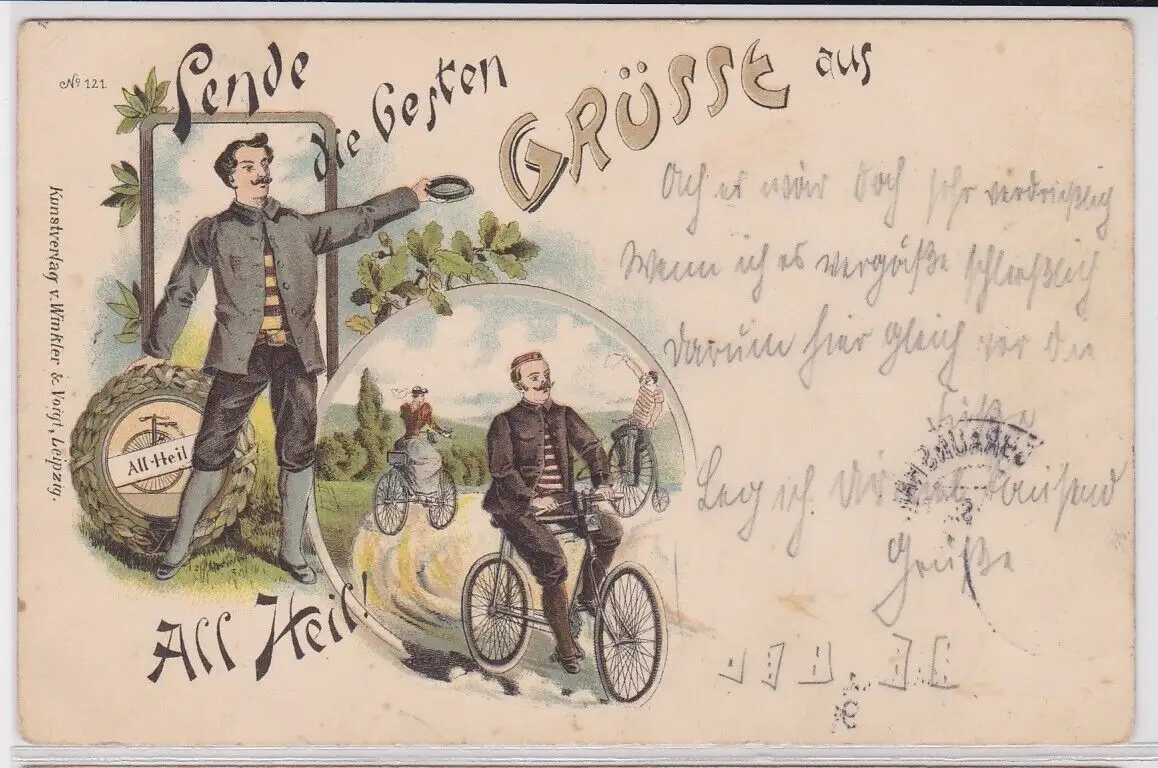 No 121
Sende
die besten
GRÜSSE aus
Kunstverlag v. Winkler & Voigt, Leipzig.
All-Heil
All Heil!
Ach es wär doch sehr verdrießlich
Wenn ich es vergäße schließlich
Darum hier gleich vor die
Füße
Leg ich Dir tausend
Grüße